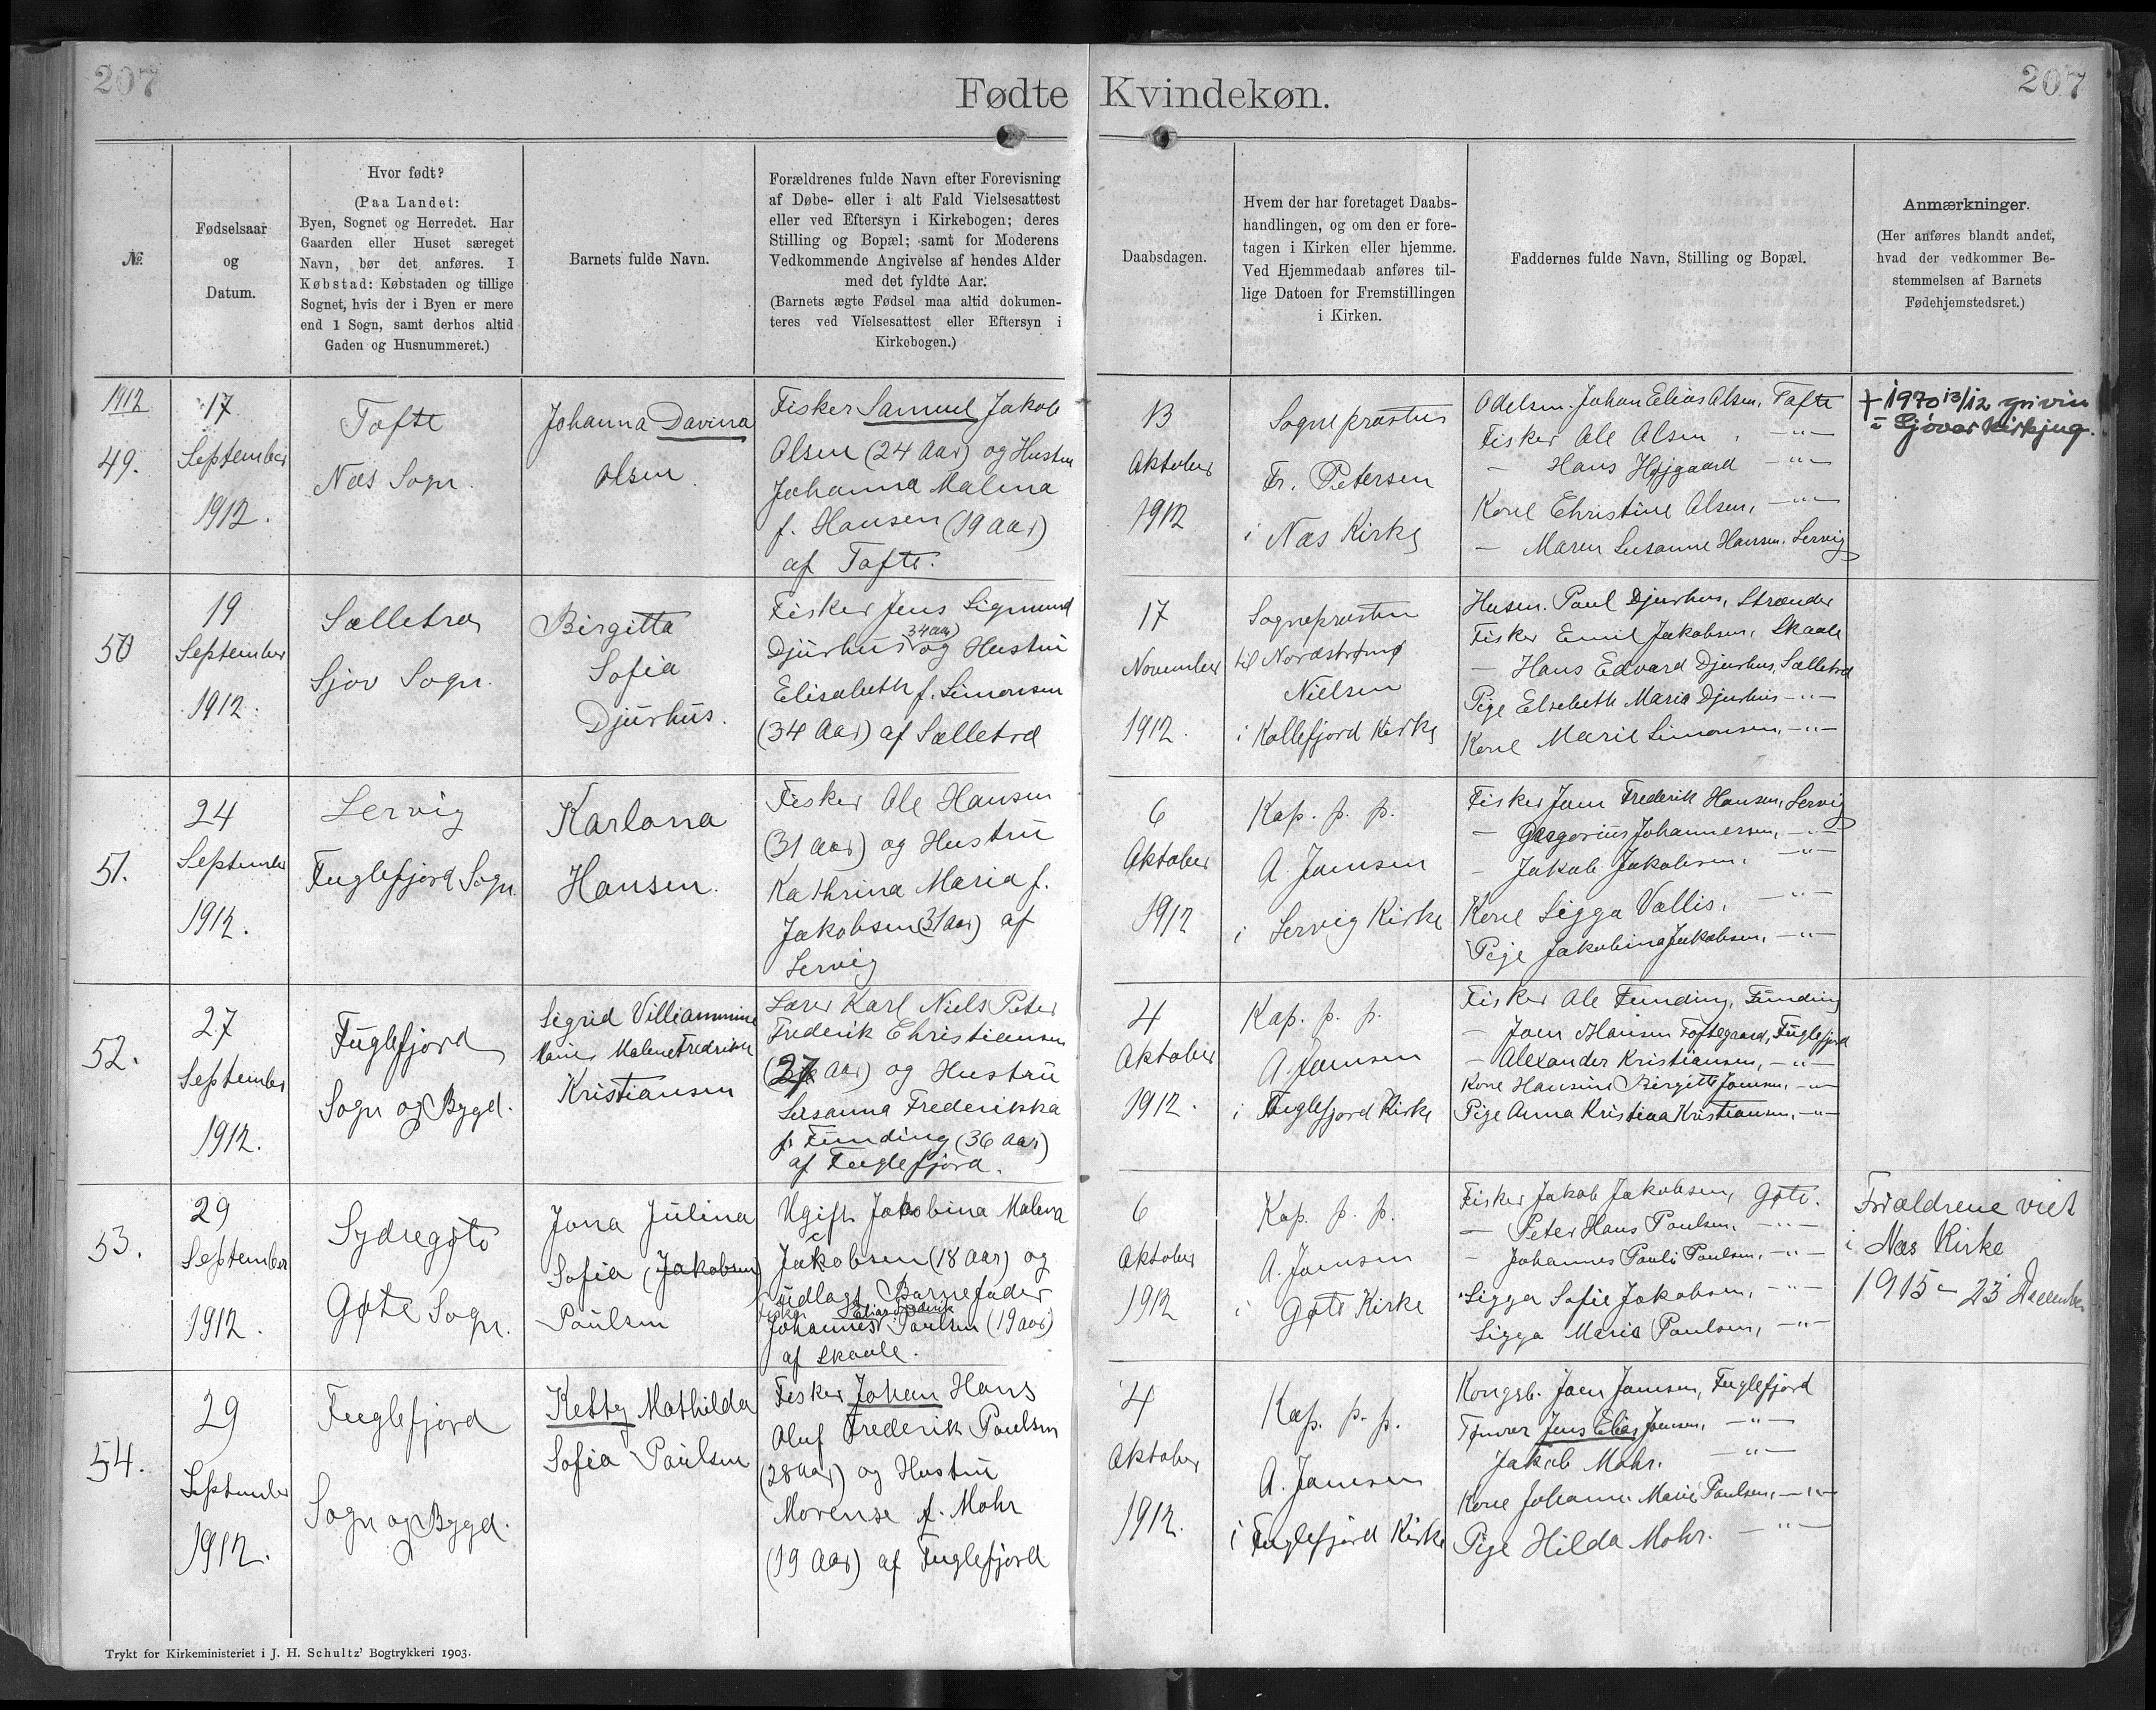 207
Fødte Kvindekøn.
207
№
Fødselsaar
og
Datum.
Hvor født?
(Paa Landet:
Byen, Sognet og Herredet. Har
Gaarden eller Huset særeget
Navn, bør det anføres. I
Købstad: Købstaden og tillige
Sognet, hvis der i Byen er mere
end 1 Sogn, samt derhos altid
Gaden og Husnummeret.)
Barnets fulde Navn.
Forældrenes fulde Navn efter Forevisning
af Døbe- eller i alt Fald Vielsesattest
eller ved Eftersyn i Kirkebogen; deres
Stilling og Bopæl; samt for Moderens
Vedkommende Angivelse af hendes Alder
med det fyldte Aar.
(Barnets ægte Fødsel maa altid dokumen-
teres ved Vielsesattest eller Eftersyn i
Kirkebogen.)
Daabsdagen.
Hvem der har foretaget Daabs-
handlingen, og om den er fore-
tagen i Kirken eller hjemme.
Ved Hjemmedaab anføres til-
lige Datoen for Fremstillingen
i Kirken.
Faddernes fulde Navn, Stilling og Bopæl.
Anmærkninger.
(Her anføres blandt andet,
hvad der vedkommer Be-
stemmelsen af Barnets
Fødehjemstedsret.)
1912
49.
17
September
1912.
Tofte
Næs Sogn.
Johanna Davina
Olsen
Fisker Samuel Jakob
Olsen (24 Aar) og Hustru
Johanna Malena
f. Hansen (19 Aar)
af Tofte.
13
Oktober
1912
Sognepræsten
Fr. Petersen
i Næs Kirke
Odelsm. Johan Elias Olsen, Tofte
Fisker Ole Olsen, -"-
- Hans Højgaard -"-
Kone Christine Olsen, -"-
- Maren Susanne Hansen, Lervig
+ 1970 13/12 grivin
i Sjóvar kirkjug.
50
19
September
1912.
Sælletræ
Sjov Sogn.
Birgitta
Sofia
Djurhus.
Fisker Jens Sigmund
Djurhus (34 Aar) og Hustru
Elisabeth f. Simonsen
(34 Aar) af Sælletræ
17
November
1912.
Sognepræsten
til Nordstrømø
Nielsen
i Kollefjord Kirke
Husm. Paul Djurhus, Strænder
Fisker Emil Jakobsen, Skaale
- Hans Edvard Djurhus, Sælletræ
Pige Elsebeth Maria Djurhus -"-
Kone Marie Simonsen, -"-
51.
24
September
1912.
Lervig
Fuglefjord Sogn
Karlona
Hansen.
Fisker Ole Hansen
(31 Aar) og Hustru
Kathrina Maria f.
Jakobsen (31 Aar) af
Lervig
6
Oktober
1912
Kap. p. p.
A. Joensen
i Lervig Kirke
Fisker Joen Frederik Hansen, Lervig
- Gregorius Johannesen, -"-
- Jakob Jakobsen, -"-
Kone Sigga Vallis, -"-
Pige Jakobina Jakobsen, -"-
52.
27
September
1912.
Fuglefjord
Sogn og Bygd.
Sigrid Villiammine
Malene Fredrikke
Kristiansen
Lærer Karl Niels Peter
Frederik Christiansen
(27 Aar) og Hustru
Susanna Frederikka
f. Funding (36 Aar)
af Fuglefjord.
4
Oktober
1912.
Kap. p. p.
A. Joensen
i Fuglefjord Kirke
Fisker Ole Funding, Funding
- Joen Hansen Toftegaard, Fuglefjord
- Alexander Kristiansen, -"-
Kone Hansine Birgitte Joensen, -"-
Pige Anna Kristina Kristiansen, -"-
53.
29
September
1912.
Sydregøte
Gøte Sogn.
Jona Julina
Sofia (Jakobsen)
Paulsen
Ugift Jakobina Malena
Jakobsen (18 Aar) og
udlagt Barnefader
Fisker Elias Frederik
Johannes Paulsen (19 Aar)
af Skaale.
6
Oktober
1912
Kap. p. p.
A. Joensen
i Gøte Kirke
Fisker Jakob Jakobsen, Gøte.
- Peter Hans Paulsen, -"-
- Johannes Pauli Paulsen, -"-
Sigga Sofie Jakobsen, -"-
Sigga Maria Paulsen, -"-
Forældrene viet
i Næs Kirke
1915 - 23 December
54.
29
September
1912.
Fuglefjord
Sogn og Bygd.
Ketty Mathilda
Sofia Paulsen
Fisker Johan Hans
Oluf Frederik Paulsen
(28 Aar) og Hustru
Morense f. Mohr
(19 Aar) af Fuglefjord
4
Oktober
1912.
Kap. p. p.
A. Joensen
i Fuglefjord Kirke
Kongsb. Joen Joensen, Fuglefjord
Tømrer Jens Elias Joensen, -"-
Jakob Mohr. -"-
Kone Johanne Marie Paulsen, -"-
Pige Hilda Mohr. -"-
Trykt for Kirkeministeriet i J. H. Schultz' Bogtrykkeri 1903.